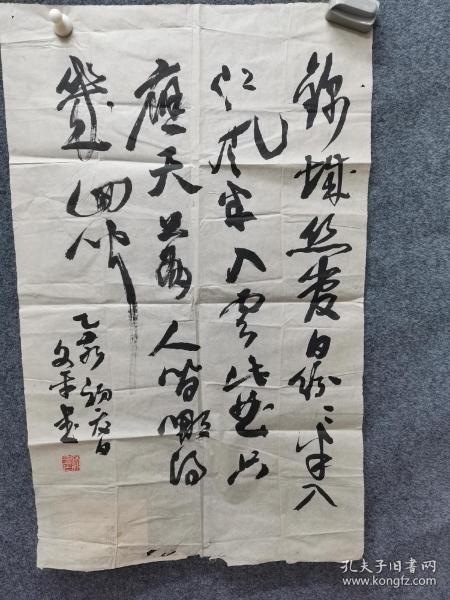 錦城丝管日纷纷半入
江风半入云此曲只
应天上有人间哪得
几回闻
乙亥初春日
文平书
孔夫子旧书网
www.kongfz.com